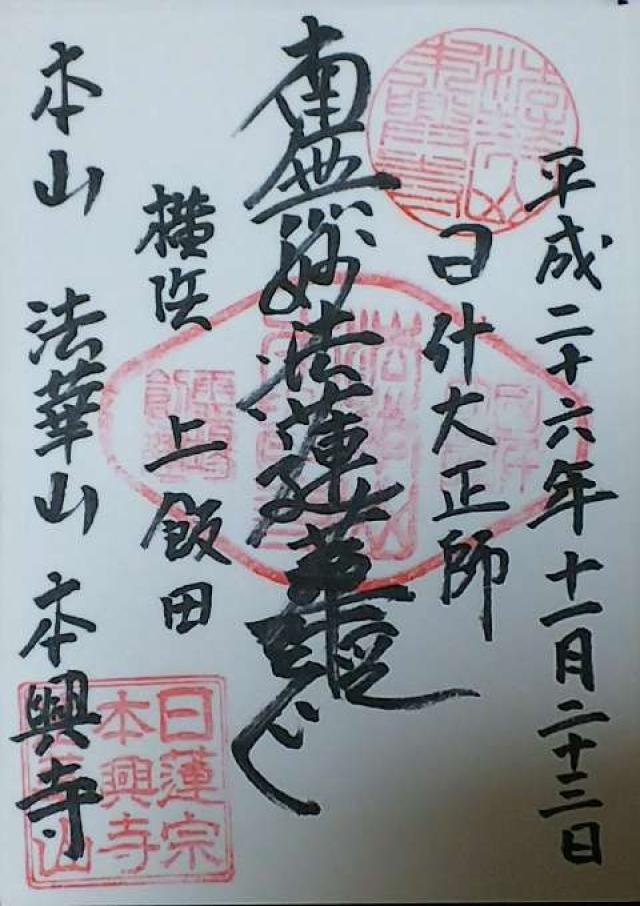 平成二十六年十一月二十三日
日什大正師
南無妙法蓮華経
横浜 上飯田
本山 法華山 本興寺
日蓮宗
本興寺